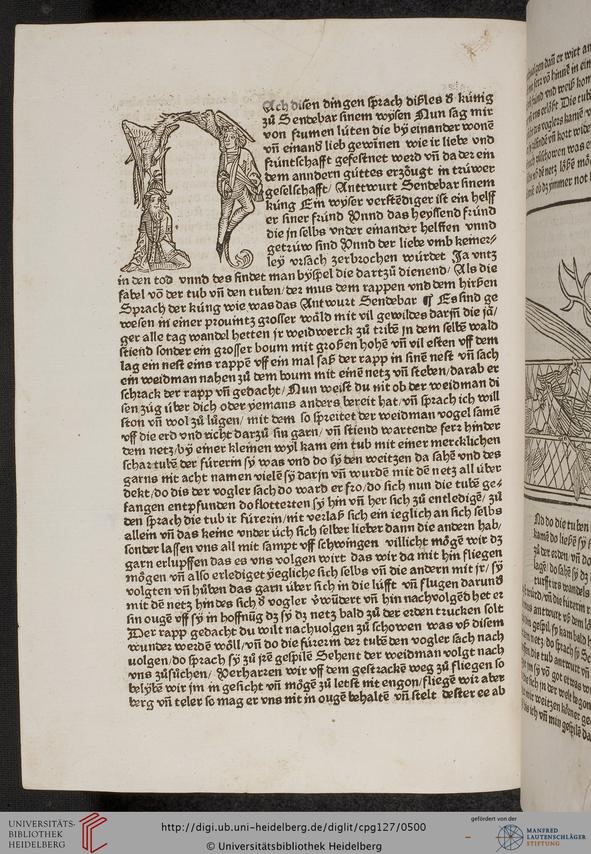 Nach disen dingen sprach disles d̕ künig
zů Sendebar sinem wysen Nun sag mir
von frumen lüten die by einander wonē
vñ einand̕ lieb gewinen wie ir liebe vnd
früntschafft gefestnet werd vñ da der ein
dem anndern güttes erzöugt in trüwer
geselschafft/ Anttwurt Sendebar sinem
küng Ein wyser verstēdiger ist ein helff
er siner fründ Vnnd das heyssend fründ
die jn selbs vnder einander helffen vnnd
getrüw sind Vnnd der liebe vmb keiner⸗
ley vrsach zerbrochen würdet Ja vntz
in den tod vnnd des findet man byspel die dartzů dienend/ Als die
fabel vō der tub vñ den tuben/der mus dem rappen vnd dem hirßen
Sprach der küng wie was das Antwurt Sendebar ¶ Es sind ge
wesen in einer prouintz grosser wäld mit vil gewildes darjñ die jä/
ger alle tag wandel hetten jr weidwerck zů tribē jn dem selbē wald
stiend sonder ein grosser boum mit großen hohē vñ vil esten vff dem
lag ein nest eins rappē vff ein mal saß der rapp in sinē nest vñ sach
ein weidman nahen zů dem boum mit einē netz vñ steben/darab er
schrack der rapp vñ gedacht/Nun weist du nit ob der weidman di
sen züg über dich oder yemans anders bereit hat/vñ sprach ich will
ston vñ wol zů lůgen/ mit dem so spreitet der weidman vogel samē
vff die erd vnd richt darzů sin garn/ vñ stiend wartende ferr hinder
dem netz/by einer kleinen wyl kam ein tub mit einer mercklichen
schar tubē der fürerin sy was vnd do sy den weitzen da sahē vnd des
garns nit acht namen vielē sy darjn vñ wurdē mit dē netz all über
dekt/do dis der vogler sach do ward er fro/do sich nun die tubē ge⸗
fangen entpfunden do flotterten sy hin vñ her sich zů entledigē/ zů
den sprach die tub ir fürerin/nit verlaß sich ein ieglich an sich selbs
allein vñ das keine vnder üch sich selber lieber dann die andern hab/
sonder lassen vns all mit sampt vff schwingen villicht mögē wir dz
garn erlupffen das es vns volgen wirt das wir da mit hin fliegen
mögen vñ also erlediget yegliche sich selbs vñ die andern mit jr/ sy
volgten vñ hůben das garn über sich in die lüfft vñ flugen darund̕
mit dē netz hin des sich d̕ vogler v̕wūdert vñ hin nachvolgēd het er
sin ougē vff sy in hoffnūg dz sy dz netz bald zů der erden trucken solt
Der rapp gedacht du wilt nachuolgen zů schowen was vß disem
wunder werdē wöll/vñ do die fürerin der tubē den vogler sach nach
uolgen/do sprach sy zů jrē gespilē Sehent der weidman volgt nach
vns zůsůchen/ Verharren wir vff dem gestrackē weg zů fliegen so
belybē wir jm in gesicht vñ mögē zů letst nit engon/fliegē wir aber
berg vñ teler so mag er vns nit in ougē behaltē vñ stelt dester ee ab
UNIVERSITÄTS-
BIBLIOTHEK
HEIDELBERG
http://digi.ub.uni-heidelberg.de/diglit/cpg127/0500
© Universitätsbibliothek Heidelberg
gefördert von der
MANFRED
LAUTENSCHLÄGER
STIFTUNG